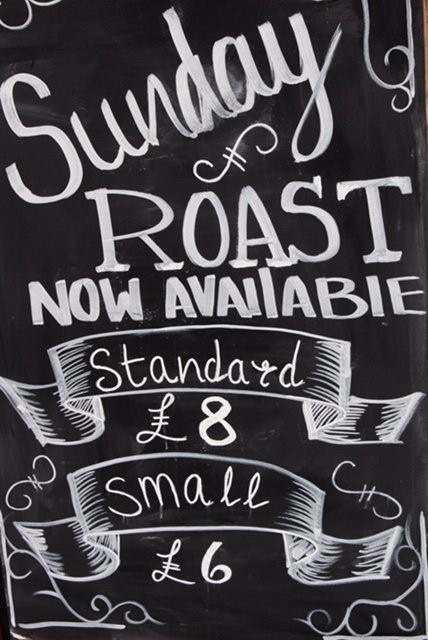 Sunday
ROAST
NOW AVAILABLE
Standard
£8
Small
£6